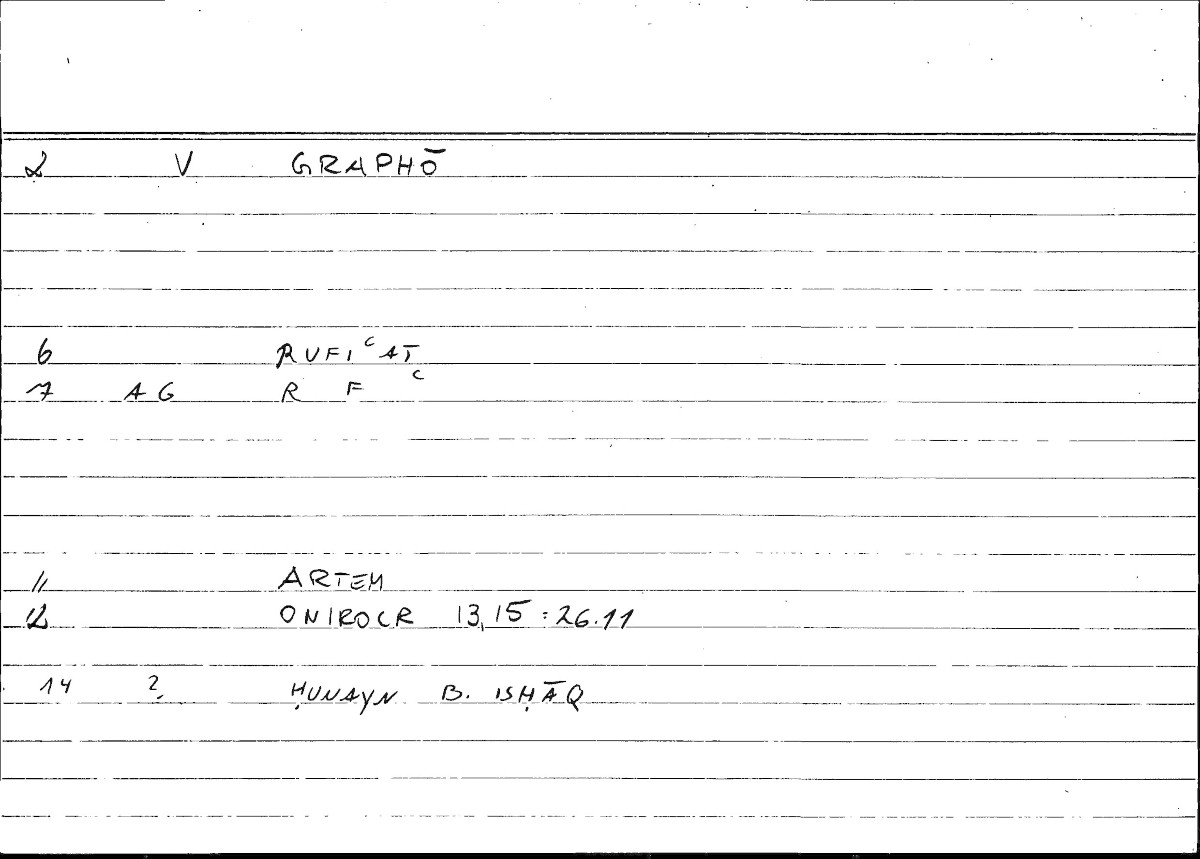 2 V GRAPHŌ
6 RUFIᶜAT
7 AG R F ᶜ
11 ARTEM
12 ONIROCR 13,15 : 26.11
14 2. ḤUNAYN B. ISḤĀQ